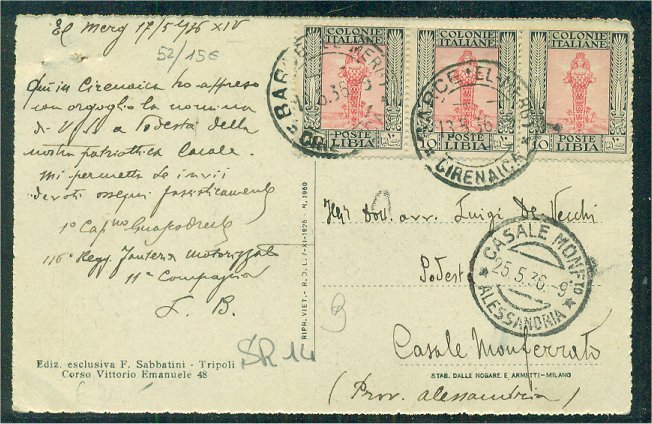 El Merg 17/5 936 XIV
52/15€
Qui in Cirenaica ho appreso
con orgoglio la nomina
di V.S. a Podestà della
nostra patriottica Casale.
Mi permetta Le invii
devoti ossequi fascisticamente
1° Cap
116° Regg. Fanteria Motorizzata
11ª Compagnia
F. B.
Ediz. esclusiva F. Sabbatini - Tripoli
Corso Vittorio Emanuele 48
SR 14
RIPR. VIET. - R. D. L. 7-XI-1925 N. 1950
COLONIE ITALIANE
POSTE LIBIA
10
COLONIE ITALIANE
10 POSTE LIBIA
COLONIE ITALIANE
10 POSTE LIBIA 10
BARCE EL MERG
BARCE - EL MERG
CIRENAICA
Dott. avv. Luigi De Vecchi
Podestà
CASALE MONF.TO
25.5.36.-9
ALESSANDRIA
Casale Monferrato
(Prov. Alessandria)
STAB. DALLE NOGARE E ARMETTI - MILANO